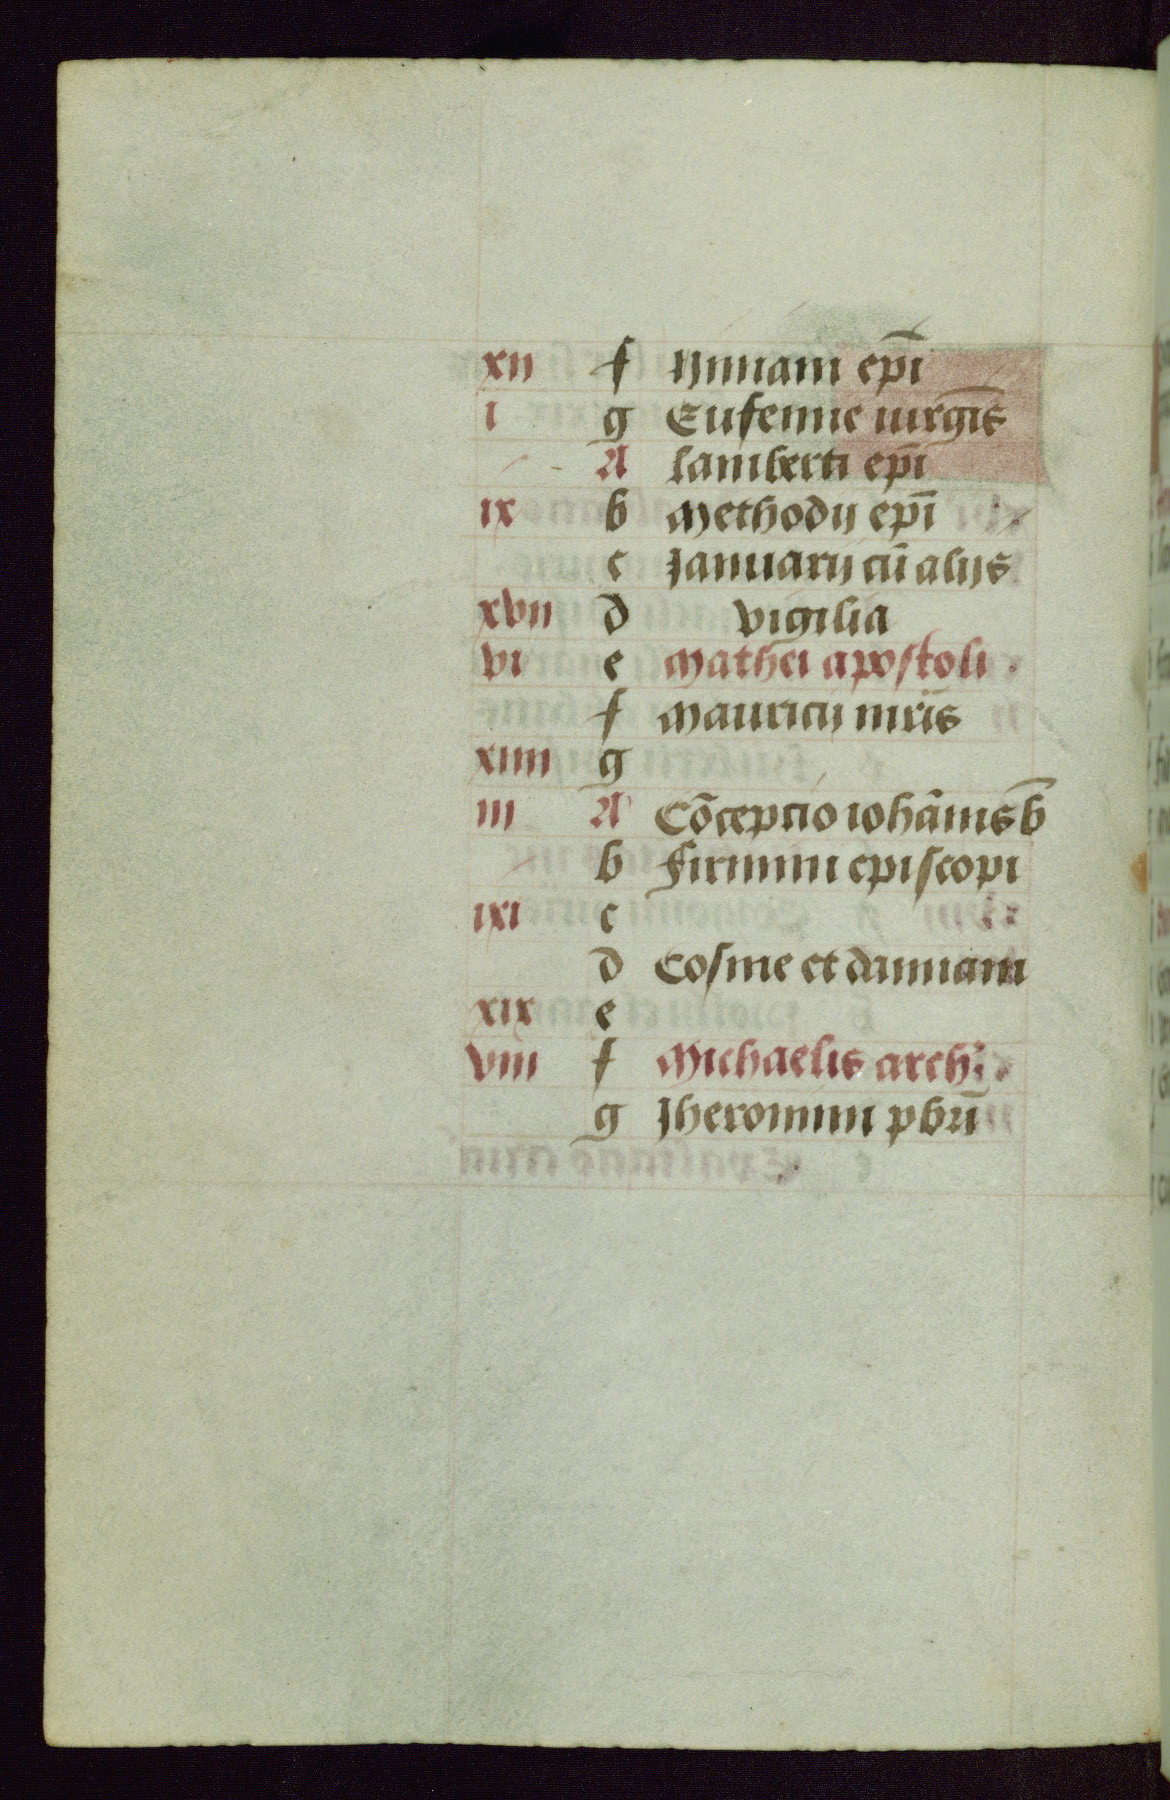 xii f Niniani ep̄i
i g Eufemie uirgīs
A lamberti ep̄i
ix b Methodij ep̄i
c Januarij cū alijs
xvii d vigilia
vi e Mathei apostoli
f Mauricij mr̄is
xiiii g
iii A Cōcepcio iohānis b
b firmini episcopi
ixi c
d Cosme et damiani
xix e
viii f Michaelis arch:
g Jheronimi pbr̄i